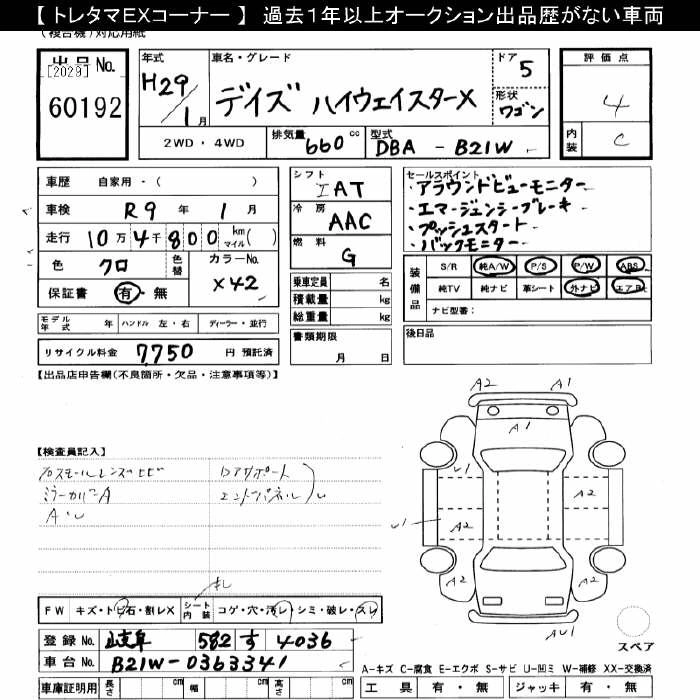 【 トレタマEXコーナー 】 過去1年以上オークション出品歴がない車両
(複合機)対応用紙
出品No.
[2029]
60192
年式
H29/1月
車名・グレード
デイズ ハイウェイスターX
ドア 5
形状 ワゴン
評価点
4
内装 C
2WD・4WD
排気量 660 cc
型式 DBA - B21W
車歴 自家用・( )
車検 R9 年 1 月
走行 10万4千800 km マイル( )
色 クロ 色替 カラーNo. X42
保証書 有・無
シフト IAT
冷房 AAC
燃料 G
乗車定員 名
積載量 kg
総重量 kg
書類期限
月 日
セールスポイント
・アラウンドビューモニター
・エマージェンシーブレーキ
・プッシュスタート
・バックモニター
装備品
S/R 純A/W P/S P/W ABS
純TV 純ナビ 革シート 外ナビ エアB
ナビ型番:
後日品
モデル年式 年 ハンドル 左・右 ディーラー・並行
リサイクル料金 7,750 円 預託済
【出品店申告欄(不良箇所・欠品・注意事項等)】
【検査員記入】
ミラーカバーA
A・U
リアサポート
エンドパネル
FW キズ・トビ石・割レX
シート内装 コゲ・穴・汚レ・シミ・破レ・スレ
A2 A1
A1
U1
A2
U1
A2
A2 A2
AU1
スペア
登録No. 岐阜 582 す 4036
車台No. B21W-0363341
車庫証明用 長さ cm 幅 cm 高さ cm
A-キズ C-腐食 E-エクボ S-サビ U-凹ミ W-補修 XX-交換済
工具 有・無 ジャッキ 有・無